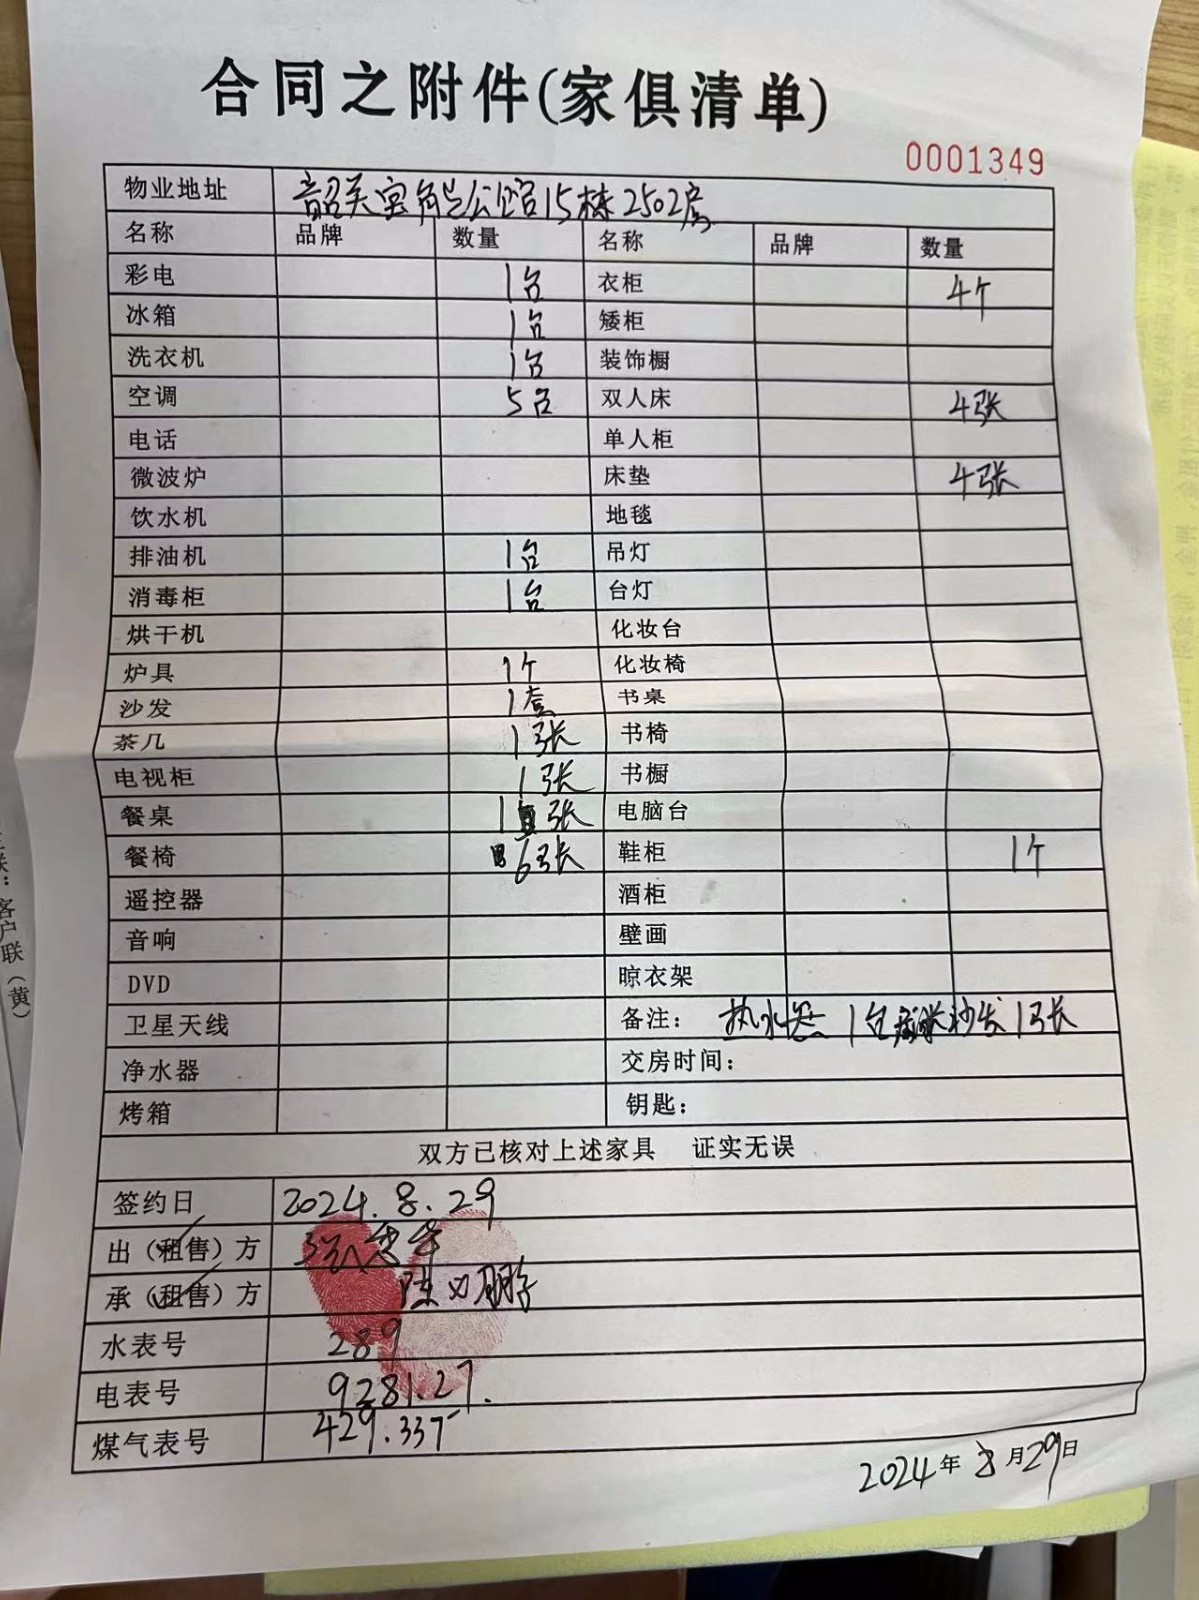 合同之附件(家俱清单)
0001349
物业地址 韶关宝能公馆15栋2502房
名称 品牌 数量 名称 品牌 数量
彩电 1台 衣柜 4个
冰箱 1台 矮柜
洗衣机 1台 装饰橱
空调 5台 双人床 4张
电话 单人柜
微波炉 床垫 4张
饮水机 地毯
排油机 1台 吊灯
消毒柜 1台 台灯
烘干机 化妆台
炉具 1个 化妆椅
沙发 1套 书桌
茶几 1张 书椅
电视柜 1张 书橱
餐桌 1张 电脑台
餐椅 6张 鞋柜 1个
遥控器 酒柜
音响 壁画
DVD 晾衣架
卫星天线 备注: 热水器 1台 沙发1张
净水器 交房时间:
烤箱 钥匙:
双方已核对上述家具 证实无误
签约日 2024.8.29
出(租售)方
承(租售)方 陈
水表号 289
电表号 9281.27.
煤气表号 429.337
2024年8月29日
联:客户联(黄)